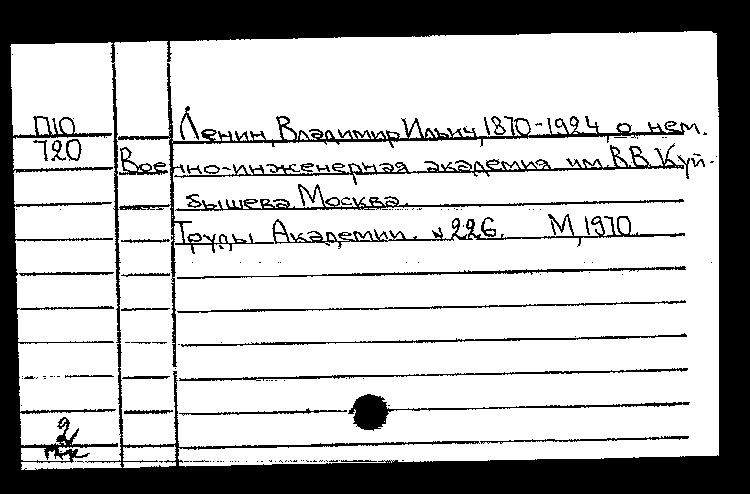 П10
Ленин, Владимир Ильич, 1870-1924, о нем.
720
Военно-инженерная академия им. В.В. Куй-
бышева. Москва.
Труды Академии. № 226. М, 1970.
2